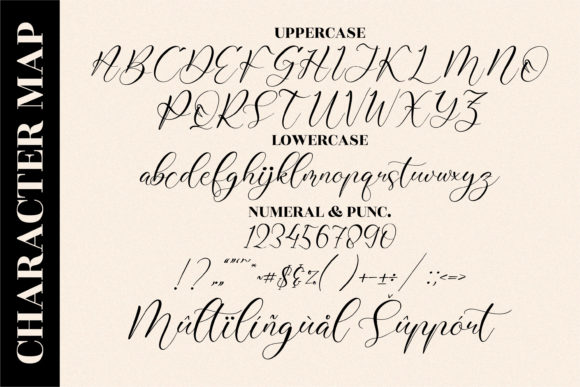 CHARACTER MAP
UPPERCASE
ABCDEFGHIJKLMNO
PQRSTUVWXYZ
LOWERCASE
abcdefghijklmnopqrstuvwxyz
NUMERAL & PUNC.
1234567890
!?~#$&%()+-±÷/:;,<=>
Mûltïlíñgùål Šûppórt